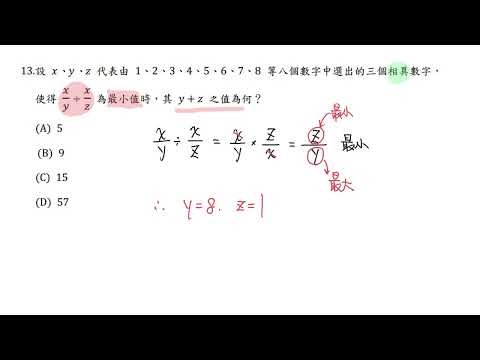 13.設 x、y、z 代表由 1、2、3、4、5、6、7、8 等八個數字中選出的三個相異數字，
使得 x/y ÷ x/z 為最小值時，其 y+z 之值為何？
(A) 5
(B) 9
(C) 15
(D) 57
x/y ÷ x/z = x/y * z/x = z/y 最小
最小
最大
∴ y=8. z=1